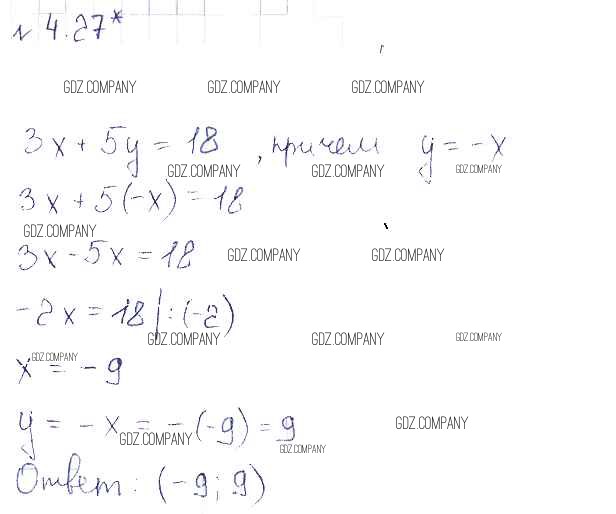 № 4.27*
GDZ.COMPANY GDZ.COMPANY GDZ.COMPANY
3x + 5y = 18, причем y = -x
GDZ.COMPANY GDZ.COMPANY GDZ.COMPANY
3x + 5(-x) = 18
GDZ.COMPANY
3x - 5x = 18
GDZ.COMPANY GDZ.COMPANY
-2x = 18 |: (-2)
GDZ.COMPANY GDZ.COMPANY GDZ.COMPANY
GDZ.COMPANY
x = -9
y = -x = -(-9) = 9
GDZ.COMPANY
GDZ.COMPANY
GDZ.COMPANY
Ответ: (-9; 9)